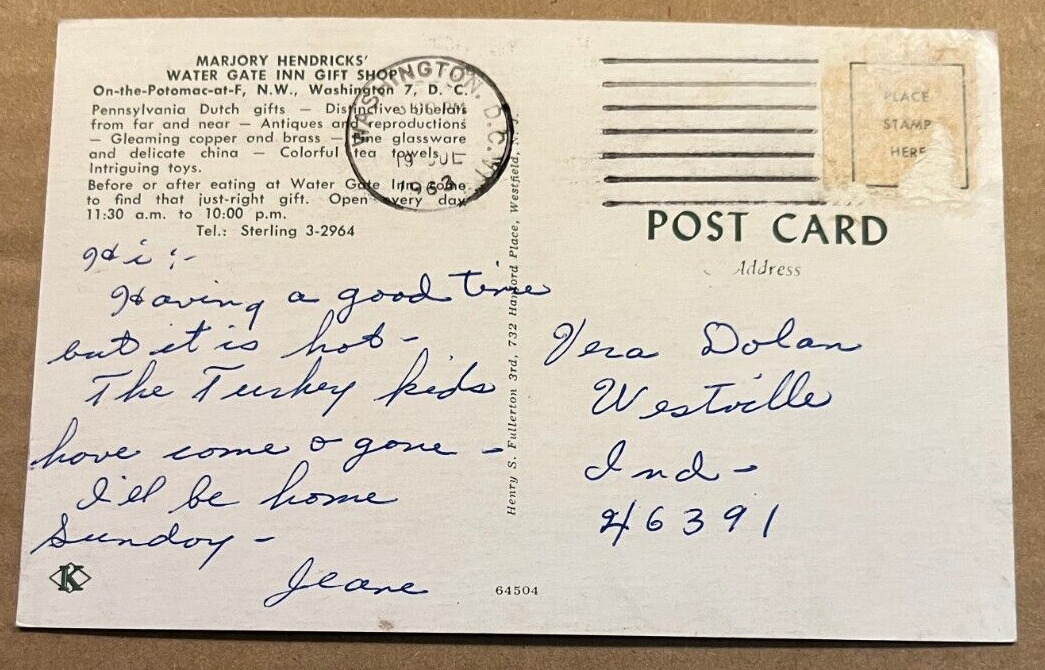 MARJORY HENDRICKS'
WATER GATE INN GIFT SHOP
On-the-Potomac-at-F, N.W., Washington 7, D. C.
Pennsylvania Dutch gifts — Distinctive bibelots
from far and near — Antiques and reproductions
— Gleaming copper and brass — Fine glassware
and delicate china — Colorful tea towels —
Intriguing toys.
Before or after eating at Water Gate Inn, come
to find that just-right gift. Open every day
11:30 a.m. to 10:00 p.m.
Tel.: Sterling 3-2964
WASHINGTON, D.C.
PM
19 JUL
1963
Hi:-
Having a good time
but it is hot-
The Turkey kids
have come & gone -
I'll be home
Sunday -
Jeane
K
Henry S. Fullerton 3rd, 732 Hanford Place, Westfield, N. J.
64504
PLACE
STAMP
HERE
POST CARD
Address
Vera Dolan
Westville
Ind -
46391